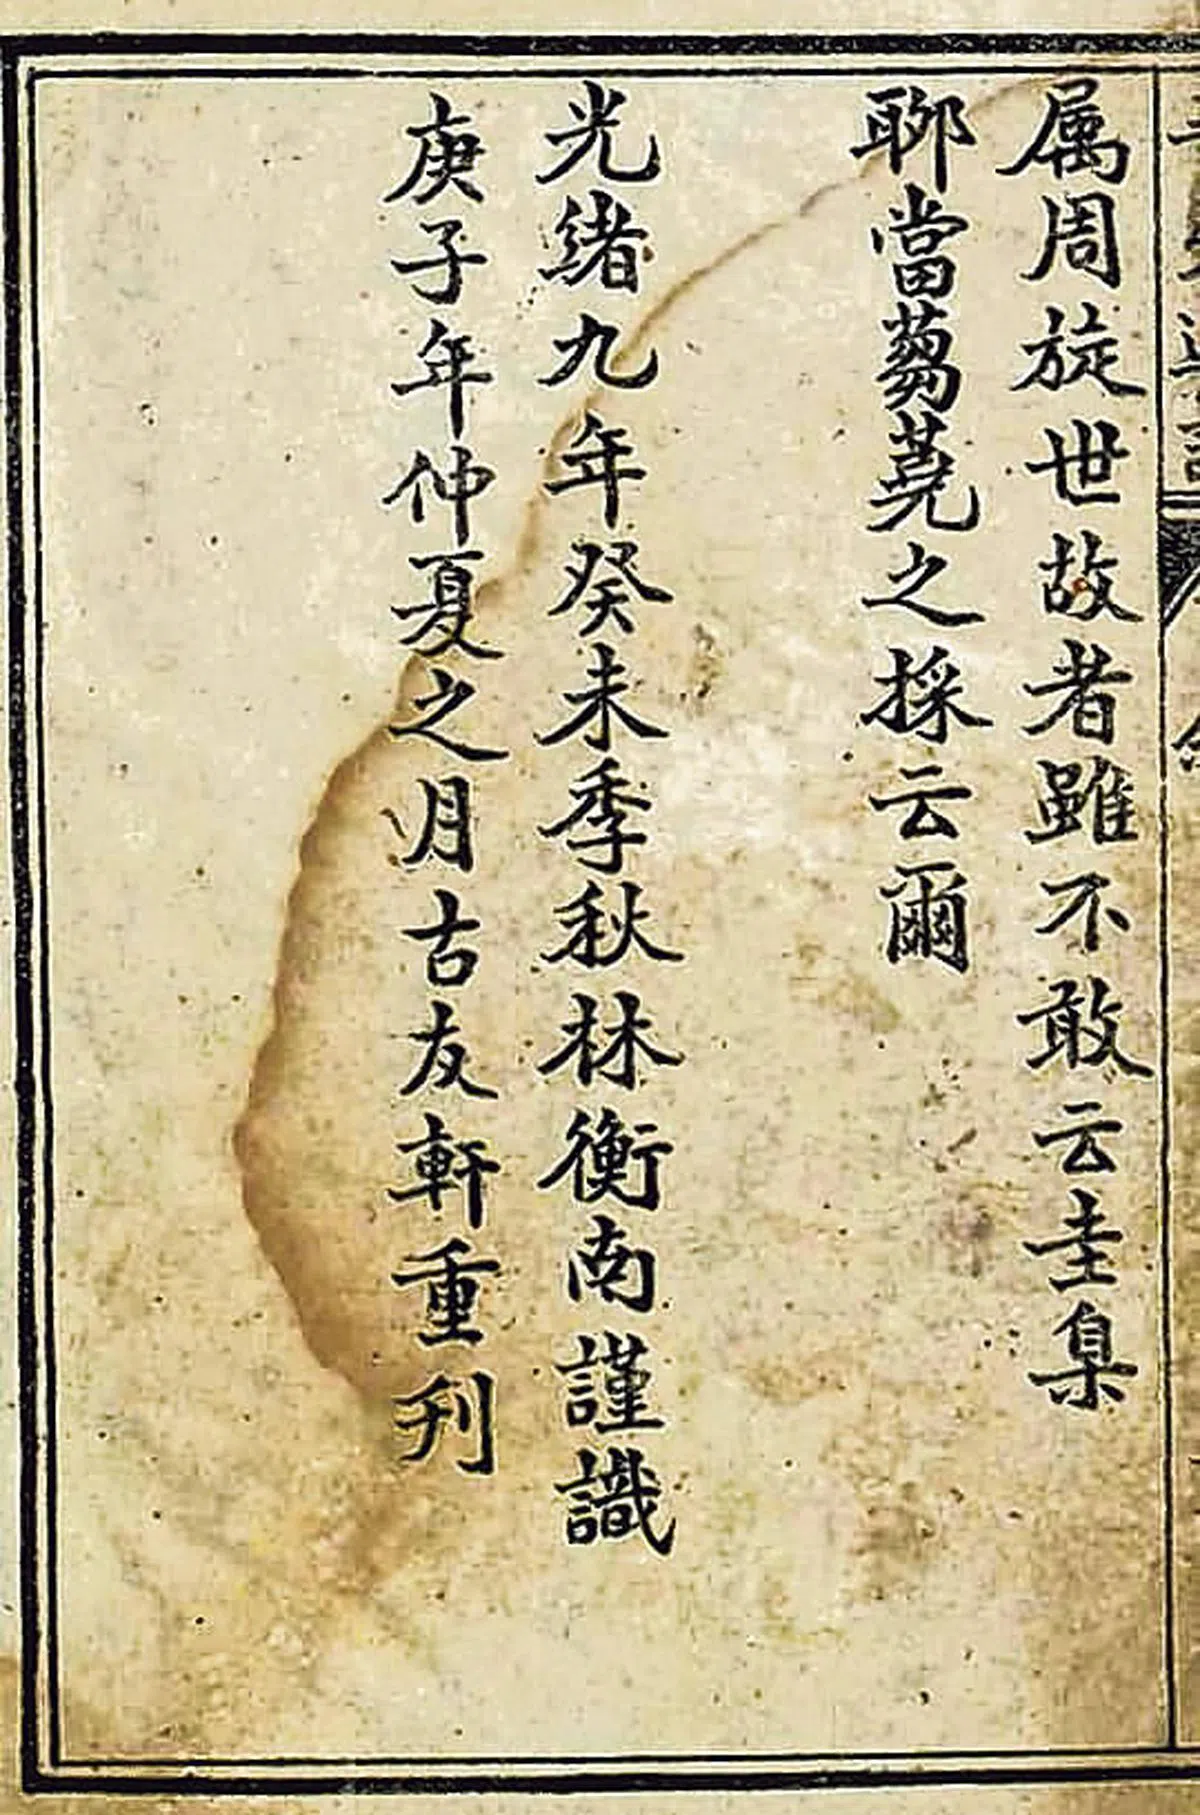 属周旋世故者雖不敢云圭臬
聊當蒭蕘之採云爾
光緒九年癸未季秋林衡南謹識
庚子年仲夏之月古友軒重刋